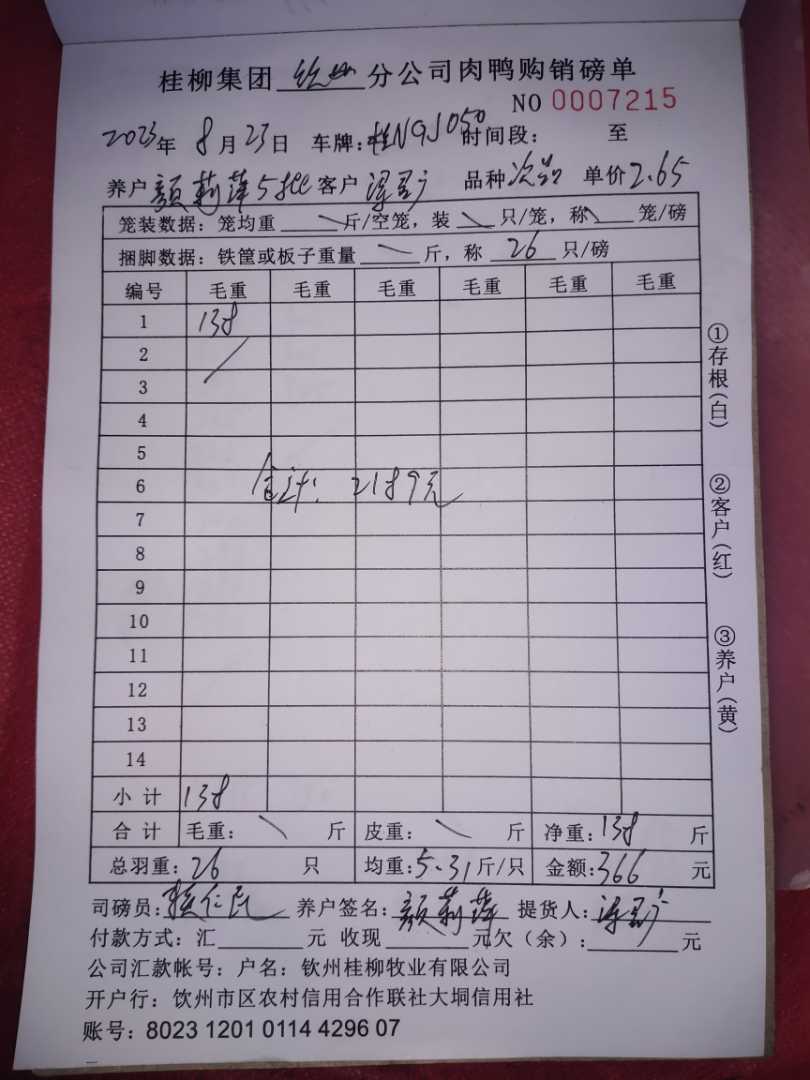 桂柳集团 钦州 分公司肉鸭购销磅单
NO 0007215
2023年 8月23日 车牌：桂N9J050 时间段： 至
养户 颜莉萍 客户 品种 次品 单价 2.65
笼装数据：笼均重 斤/空笼，装 只/笼，称 笼/磅
捆脚数据：铁筐或板子重量 斤，称 26 只/磅
编号 毛重 毛重 毛重 毛重 毛重 毛重
1 138
2
3
4
5
6 合计：2189元
7
8
9
10
11
12
13
14
小计 138
合计 毛重： 斤 皮重： 斤 净重：138 斤
总羽重：26 只 均重：5.31斤/只 金额：366 元
司磅员： 养户签名：颜莉萍 提货人：
付款方式：汇 元 收现 元欠（余）： 元
公司汇款帐号：户名：钦州桂柳牧业有限公司
开户行：饮州市区农村信用合作联社大垌信用社
账号：8023 1201 0114 4296 07
①存根（白）
②客户（红）
③养户（黄）